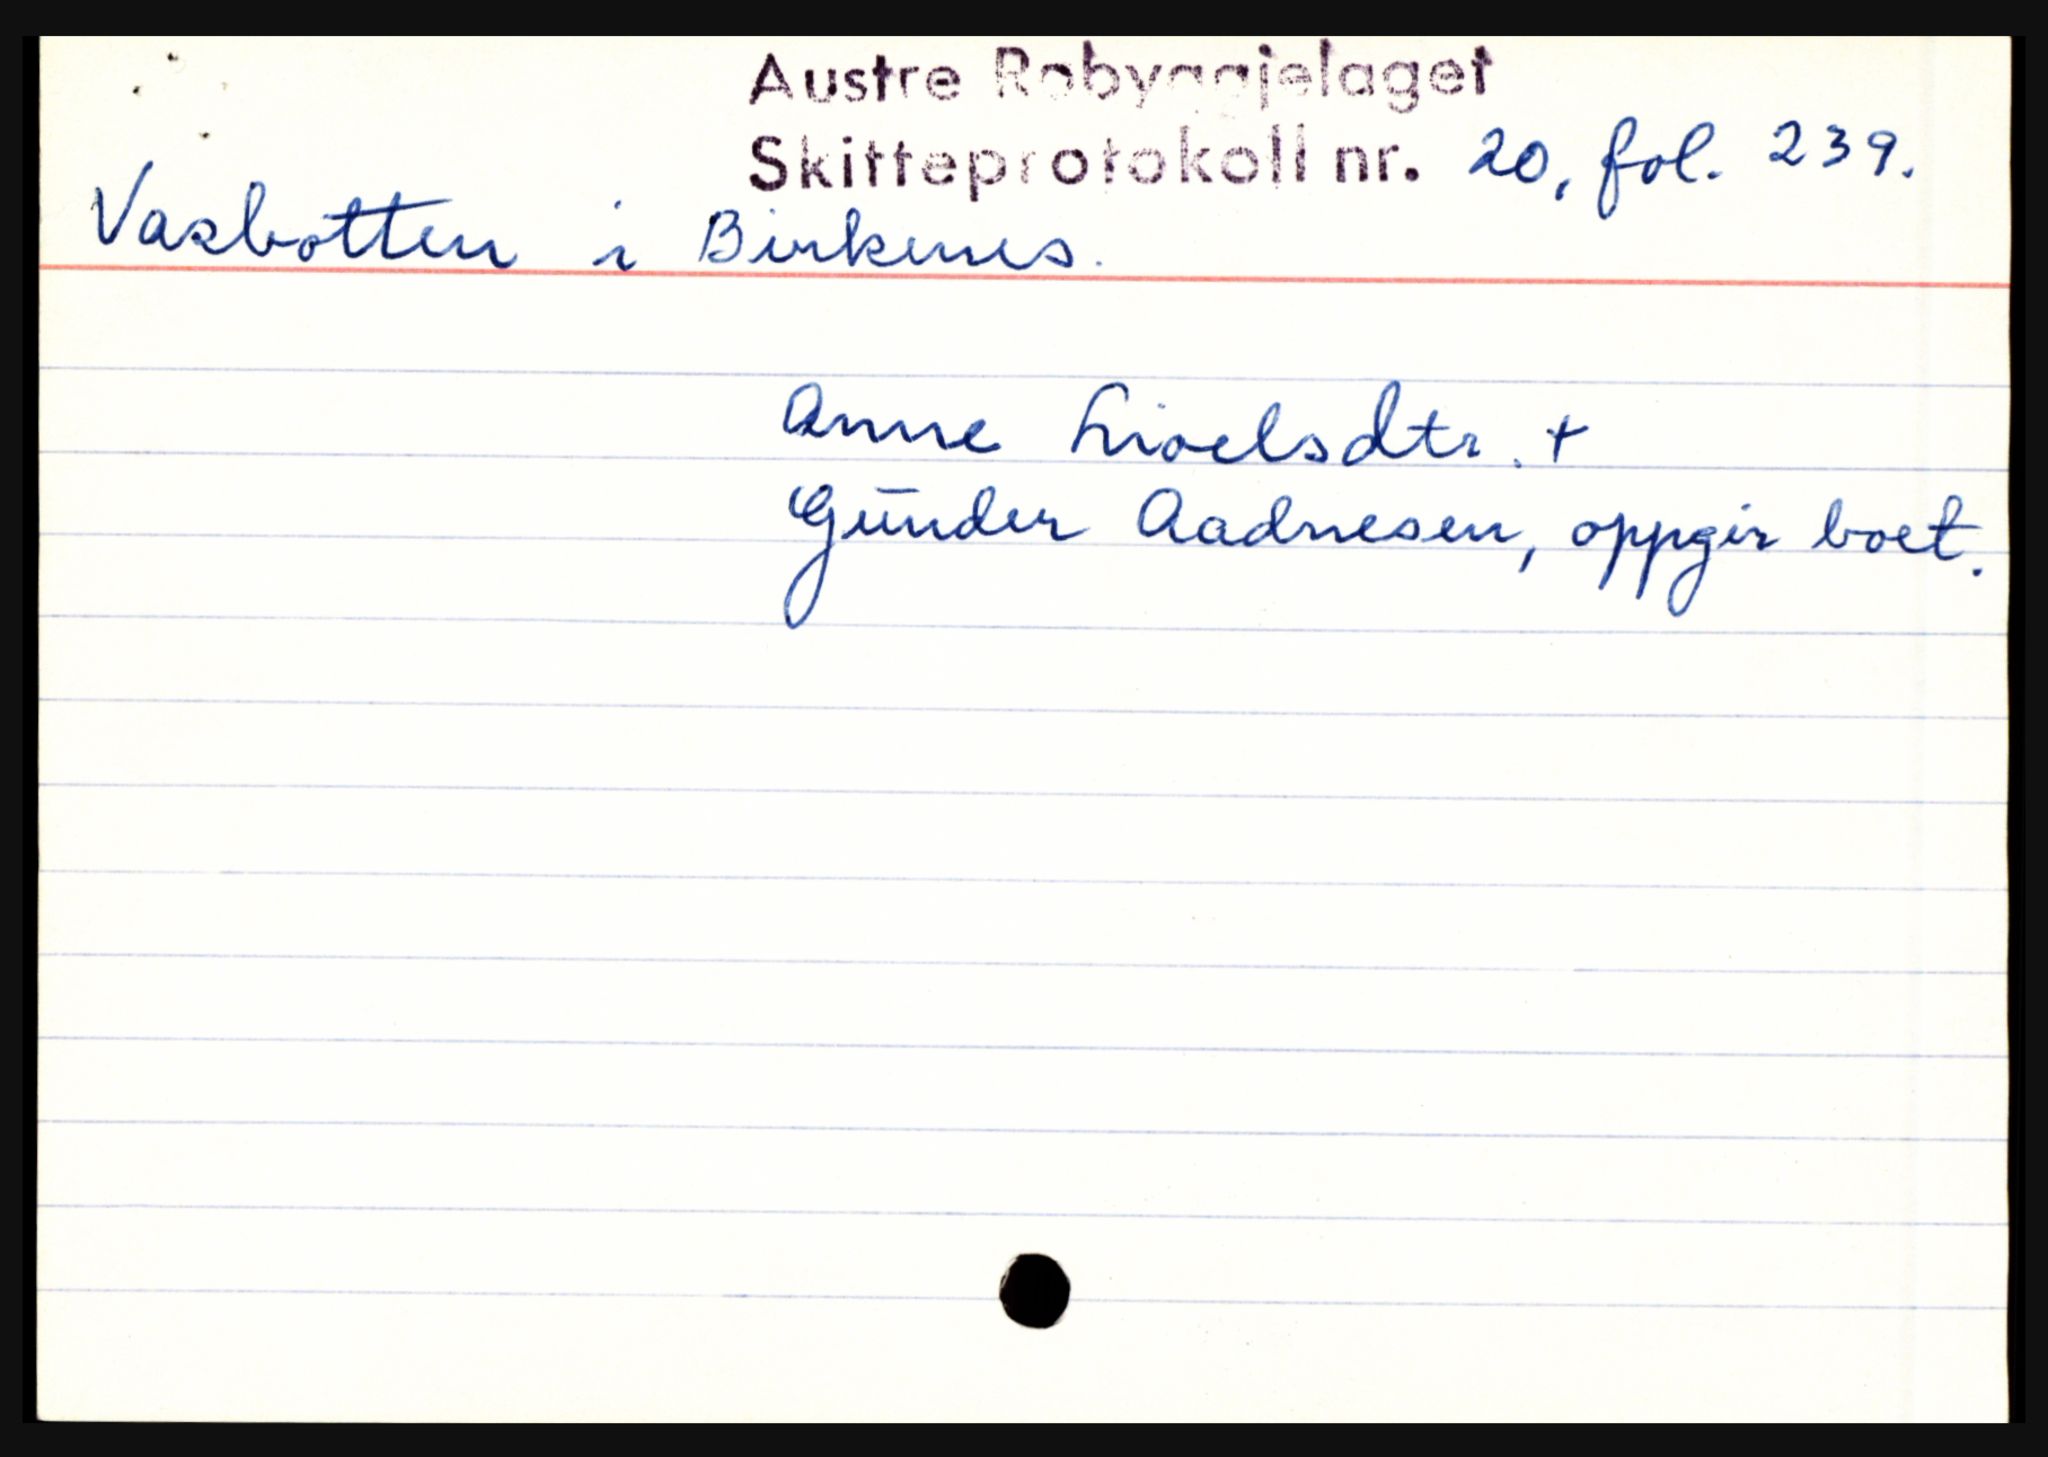 Austre Robyggjelaget
Skifteprotokoll nr. 20, fol. 239.
Vasbotten i Birkenes.
Anne Lioelsdtr. +
Gunder Aadnesen, oppgir boet.